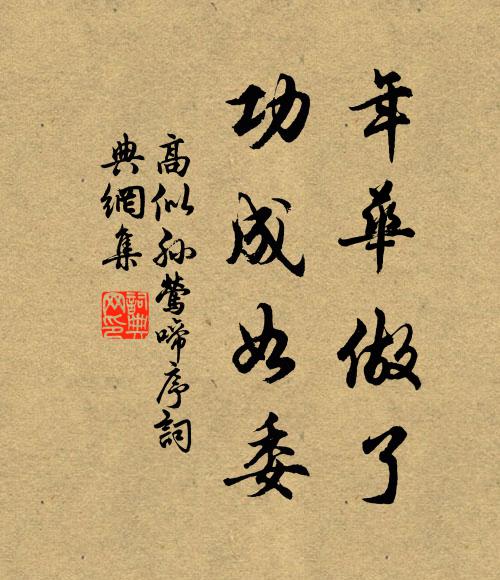 年華做了
功成如委
高似孫鶯啼序詞
典網集
詞典
网印